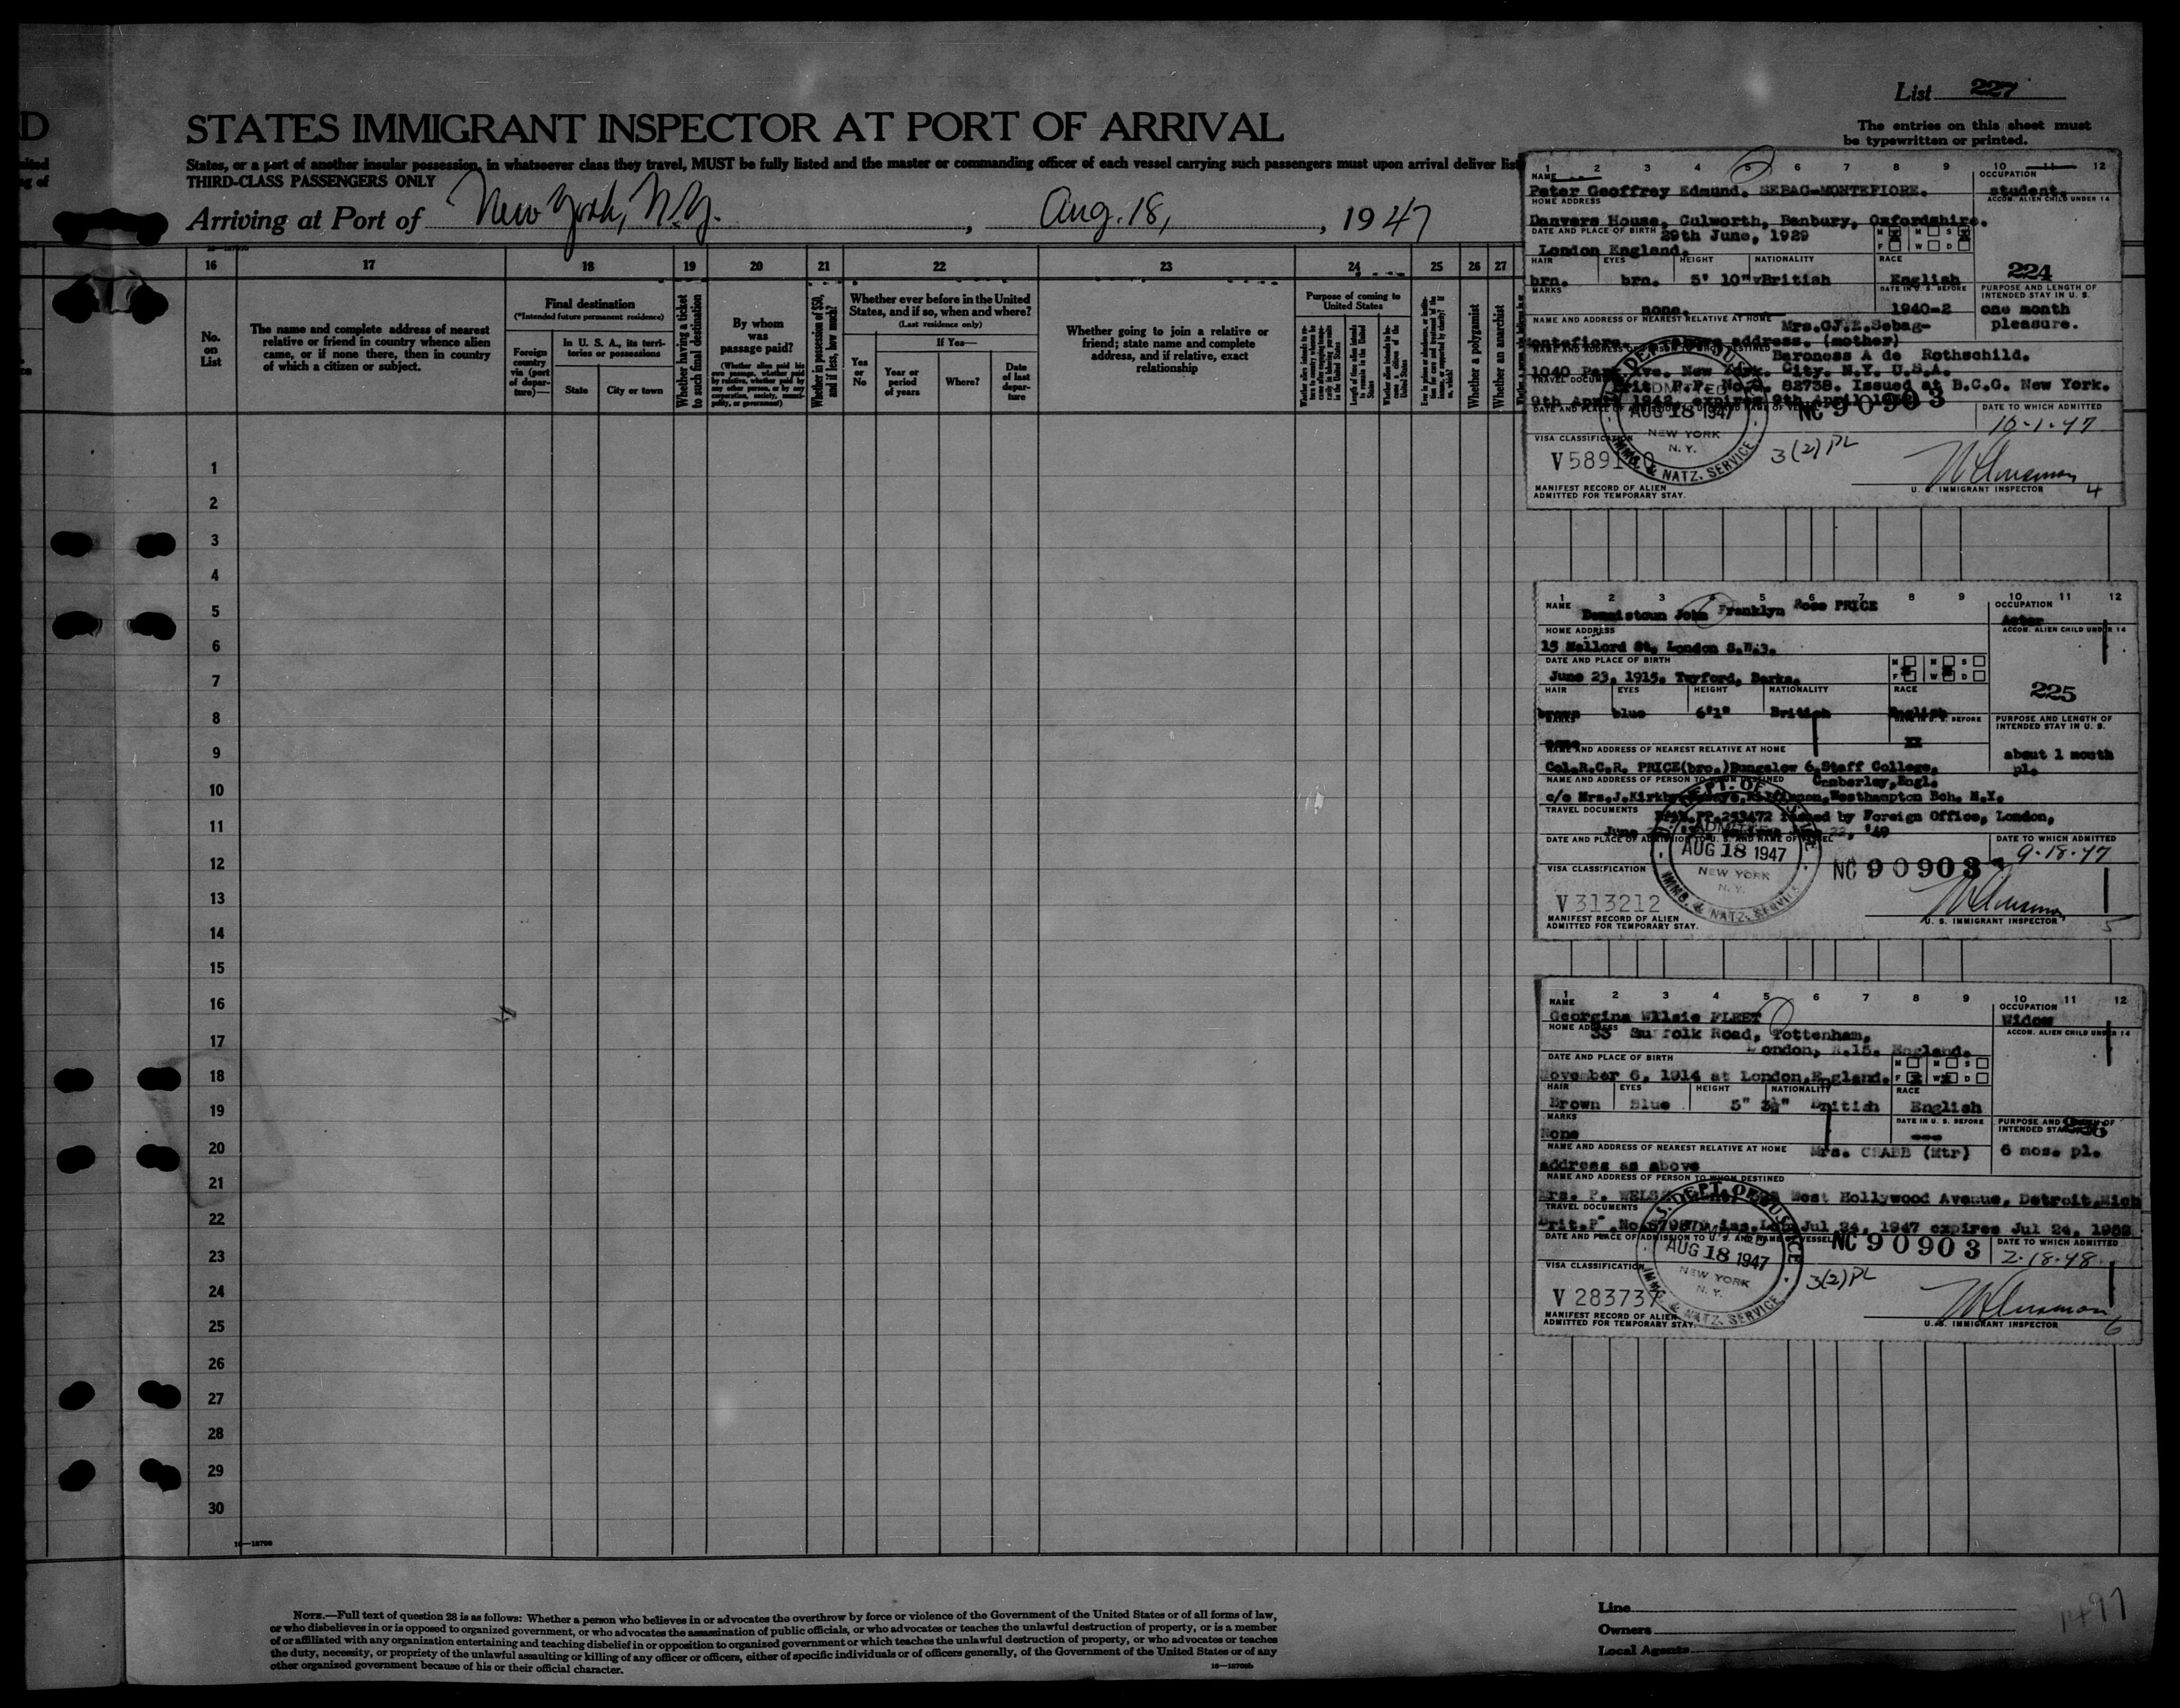 List 227
The entries on this sheet must
be typewritten or printed.
STATES IMMIGRANT INSPECTOR AT PORT OF ARRIVAL
States, or a port of another insular possession, in whatsoever class they travel, MUST be fully listed and the master or commanding officer of each vessel carrying such passengers must upon arrival deliver
THIRD-CLASS PASSENGERS ONLY
Arriving at Port of New York, N.Y. , Aug. 18, , 1947
16 17 18 19 20 21 22 23 24 25 26 27
No. on List
The name and complete address of nearest
relative or friend in country whence alien
came, or if none there, then in country
of which a citizen or subject.
Final destination
(*Intended future permanent residence)
Foreign
country
via (port
of depar-
ture)—
In U. S. A., its terri-
tories or possessions
State
City or town
Whether having a ticket
to such final destination
By whom
was
passage paid?
(Whether alien paid his
own passage, whether paid
by relative, whether paid by
any other person, or by any
corporation, society, munici-
pality, or government)
Whether in possession of $50,
and if less, how much?
Whether ever before in the United
States, and if so, when and where?
(Last residence only)
If Yes—
Yes
or
No
Year or
period
of years
Where?
Date
of last
depar-
ture
Whether going to join a relative or
friend; state name and complete
address, and if relative, exact
relationship
Purpose of coming to
United States
Whether a polygamist
Whether an anarchist
1
2
3
4
5
6
7
8
9
10
11
12
13
14
15
16
17
18
19
20
21
22
23
24
25
26
27
28
29
30
1 2 3 4 5 6 7 8 9 10 11 12
NAME
OCCUPATION
Peter Geoffrey Edmund. SEBAG-MONTEFIORE.
student.
HOME ADDRESS
ACCOM. ALIEN CHILD UNDER 14
Danvers House, Culworth, Banbury, Oxfordshire.
DATE AND PLACE OF BIRTH 29th June, 1929
M M S
London England.
F W D
HAIR EYES HEIGHT NATIONALITY RACE
224
brn. brn. 5' 10" British English
MARKS
DATE IN U. S. BEFORE
PURPOSE AND LENGTH OF
INTENDED STAY IN U. S.
none. 1940-2
one month
pleasure.
NAME AND ADDRESS OF NEAREST RELATIVE AT HOME
Mrs.GJ.E.Sebag-
Montefiore. address. (mother)
Baroness A de Rothschild.
1040 Park Ave. New York. City. N.Y. U.S.A.
Brit P.P. No. 82738. Issued at B.C.G. New York.
9th April 1942, expires 9th April
AUG 18 1947
NC 90903
DATE TO WHICH ADMITTED
10-1-47
VISA CLASSIFICATION
NEW YORK
N. Y.
IMMG. & NATZ. SERVICE
3(2)PL
MANIFEST RECORD OF ALIEN
ADMITTED FOR TEMPORARY STAY.
U. S. IMMIGRANT INSPECTOR 4
1 2 3 4 5 6 7 8 9 10 11 12
NAME
OCCUPATION
Dennistoun John Franklyn Rose PRICE
Actor
HOME ADDRESS
ACCOM. ALIEN CHILD UNDER 14
15 Mallord St, London S.W.3.
DATE AND PLACE OF BIRTH
M M S
June 23, 1915. Twyford, Berks.
F W D
HAIR EYES HEIGHT NATIONALITY RACE
225
brown blue 6'1" British English
MARKS
DATE IN U. S. BEFORE
PURPOSE AND LENGTH OF
INTENDED STAY IN U. S.
none
about 1 month
pl.
NAME AND ADDRESS OF NEAREST RELATIVE AT HOME
Col.R.C.R. PRICE(bro.)Bungalow 6,Staff College,
NAME AND ADDRESS OF PERSON TO WHOM DESTINED
Camberley,Engl.
c/o Mrs.J.Kirkby Westhampton Bch. N.Y.
TRAVEL DOCUMENTS
Brit.PP.253472 Issued by Foreign Office, London,
DATE AND PLACE OF ADMISSION TO U. S. AND NAME OF VESSEL
DATE TO WHICH ADMITTED
AUG 18 1947
9-18-47
VISA CLASSIFICATION
NC 90903
NEW YORK
N. Y.
V 313212
IMMG. & NATZ. SERVICE
MANIFEST RECORD OF ALIEN
ADMITTED FOR TEMPORARY STAY.
U. S. IMMIGRANT INSPECTOR
5
1 2 3 4 5 6 7 8 9 10 11 12
NAME
OCCUPATION
Georgina FLEET
Widow
HOME ADDRESS
ACCOM. ALIEN CHILD UNDER 14
Suffolk Road, Tottenham,
London, N.15. England.
DATE AND PLACE OF BIRTH
M M S
November 6, 1914 at London,England.
F W D
HAIR EYES HEIGHT NATIONALITY RACE
Brown Blue 5" 3½" British English
MARKS
DATE IN U. S. BEFORE
PURPOSE AND LENGTH OF
INTENDED STAY
None
NAME AND ADDRESS OF NEAREST RELATIVE AT HOME
Mrs. CRABB (Mtr)
6 mos. pl.
address as above
NAME AND ADDRESS OF PERSON TO WHOM DESTINED
Mrs. P. West Hollywood Avenue, Detroit,Mich
TRAVEL DOCUMENTS
Jul 24, 1947 expires Jul 24, 1952
DATE AND PLACE OF ADMISSION TO U. S. AND NAME OF VESSEL
NC 90903
DATE TO WHICH ADMITTED
AUG 18 1947
2-18-48
VISA CLASSIFICATION
NEW YORK
N. Y.
3(2)PL
V 283737
NATZ. SERVICE
MANIFEST RECORD OF ALIEN
ADMITTED FOR TEMPORARY STAY.
U. S. IMMIGRANT INSPECTOR
6
Note.—Full text of question 28 is as follows: Whether a person who believes in or advocates the overthrow by force or violence of the Government of the United States or of all forms of law,
or who disbelieves in or is opposed to organized government, or who advocates the assassination of public officials, or who advocates or teaches the unlawful destruction of property, or is a member
of or affiliated with any organization entertaining and teaching disbelief in or opposition to organized government or which teaches the unlawful destruction of property, or who advocates or teaches
the duty, necessity, or propriety of the unlawful assaulting or killing of any officer or officers, either of specific individuals or of officers generally, of the Government of the United States or of any
other organized government because of his or their official character.
Line
Owners
Local Agents
1497